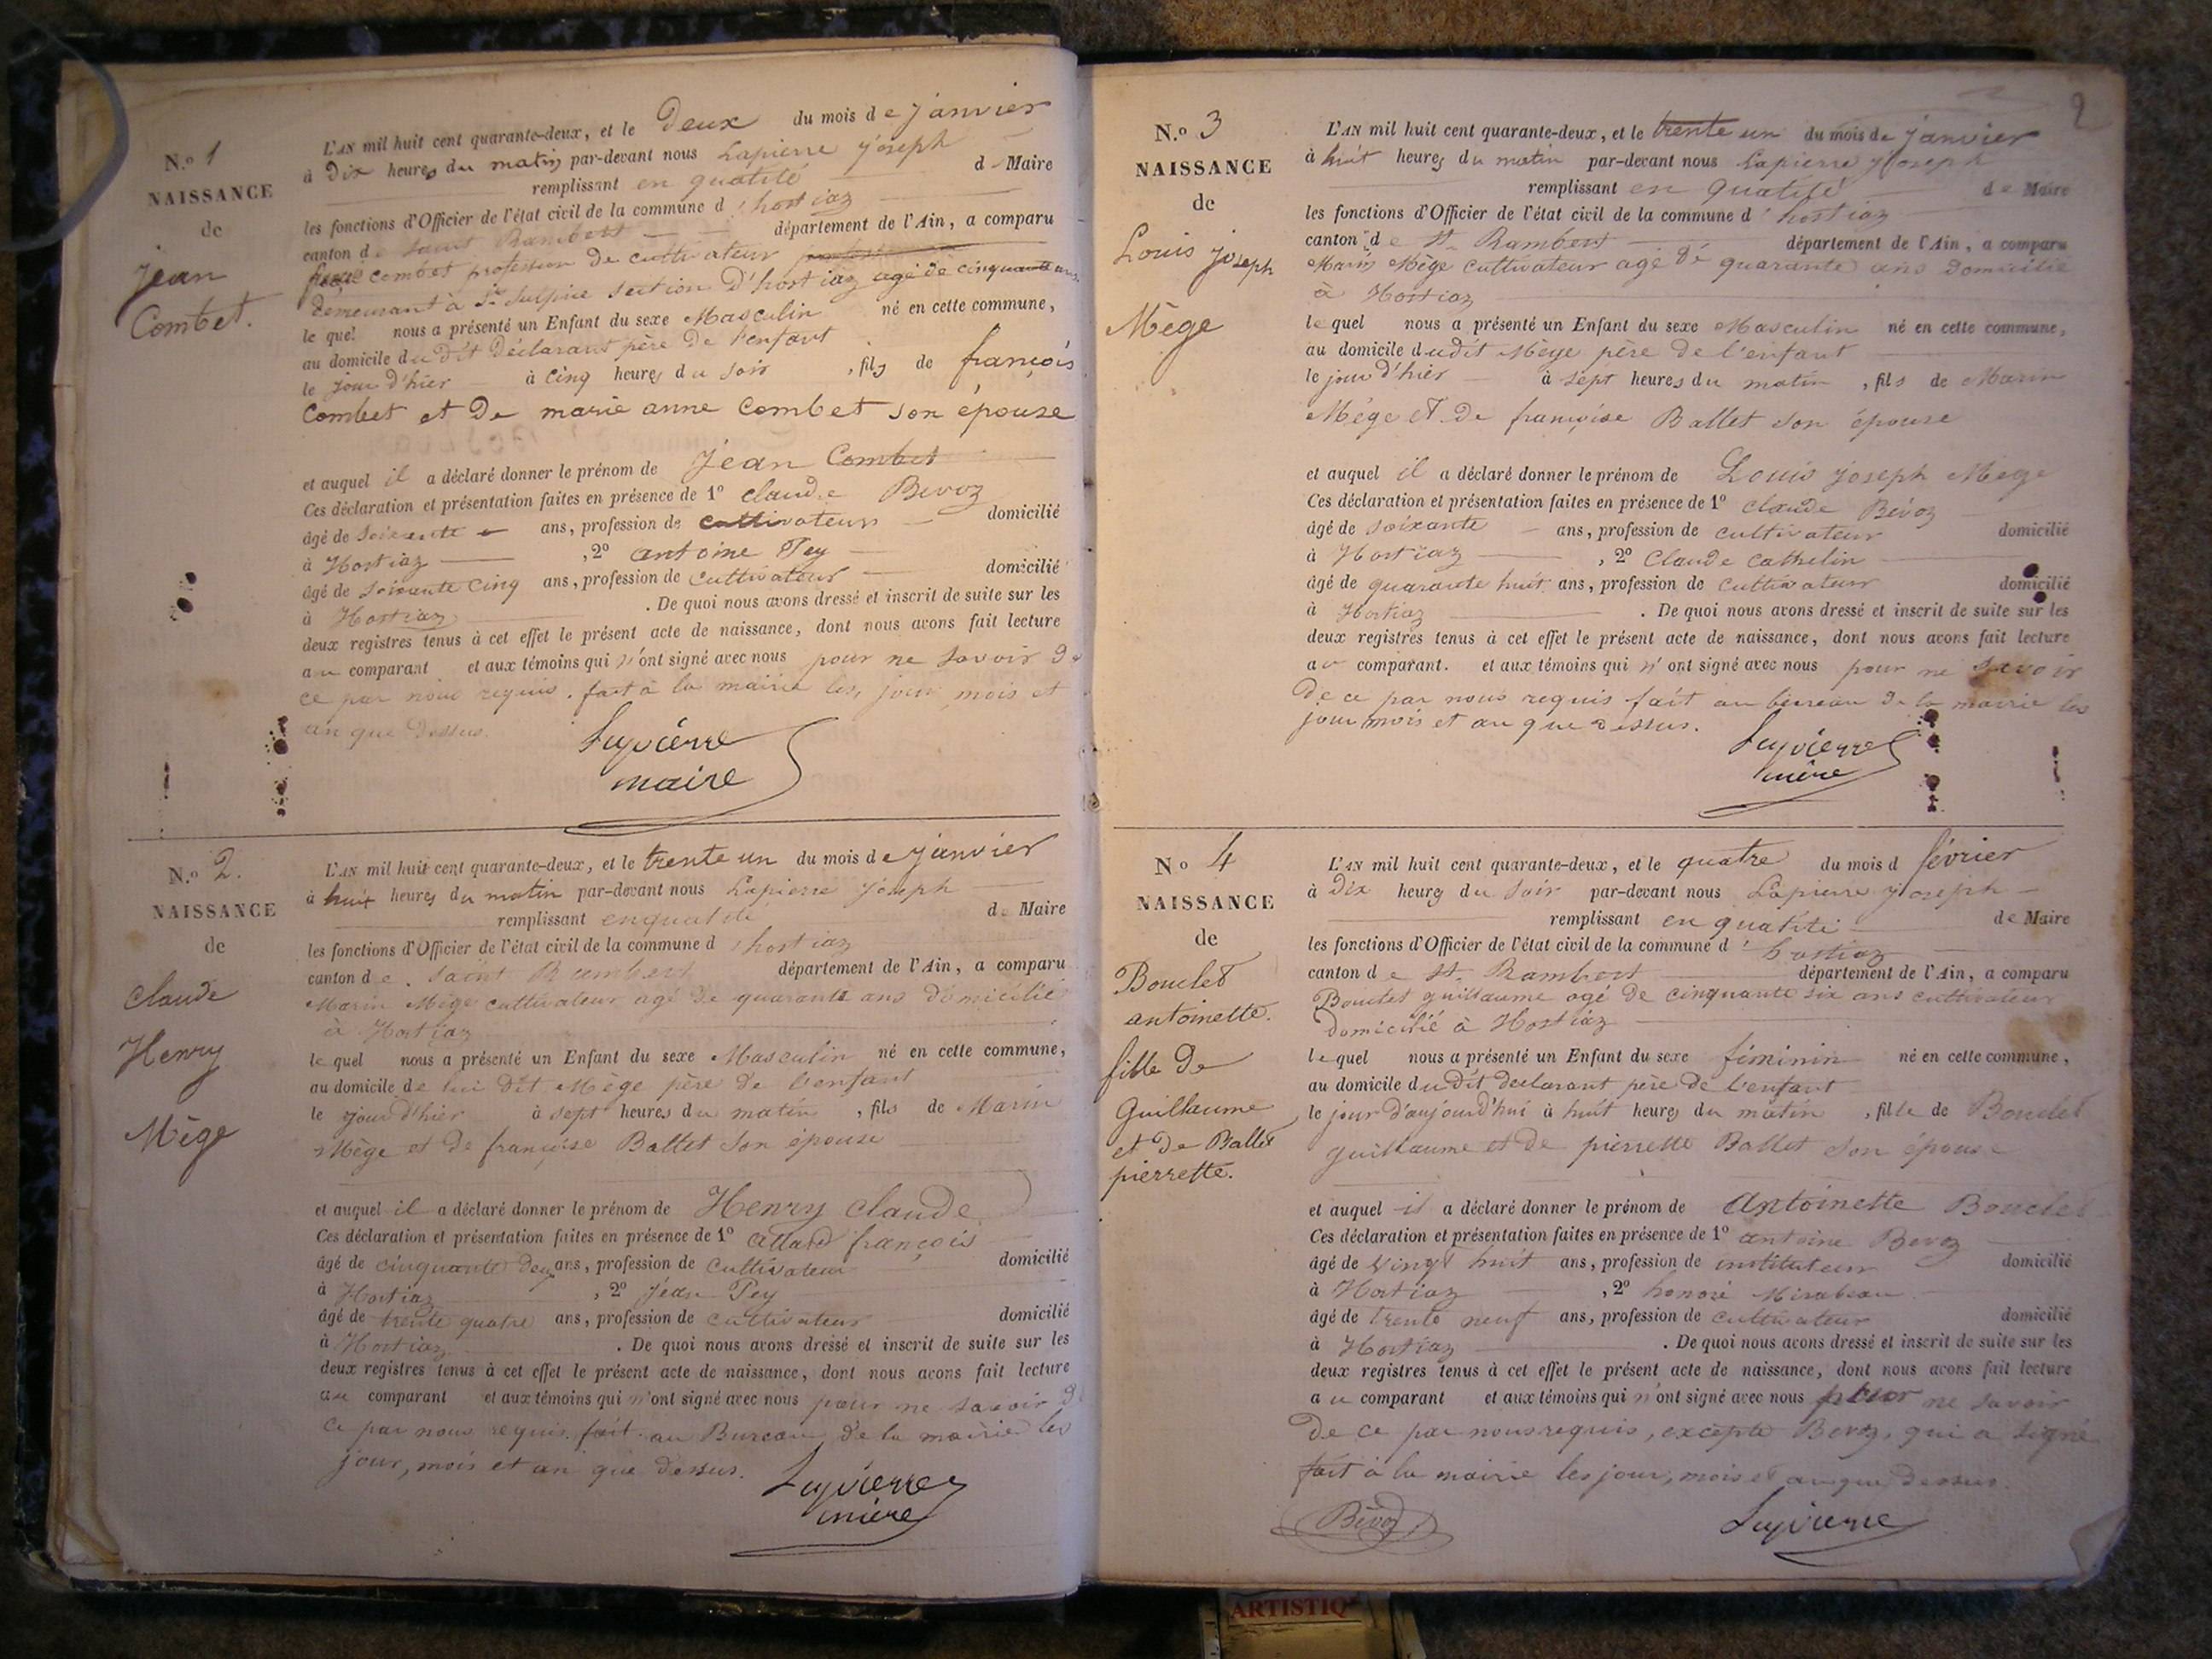 N.o 1
NAISSANCE
de
Jean
Combet.
L'AN mil huit cent quarante-deux, et le Deux du mois de janvier
à Dix heures du matin par-devant nous Lapierre joseph
remplissant en qualité de Maire
les fonctions d'Officier de l'état civil de la commune d'hostiaz
canton de saint Rambert département de l'Ain, a comparu
combet profession de cultivateur agé de cinquante ans
demeurant à St Sulpice section D'hostiaz
le quel nous a présenté un Enfant du sexe Masculin né en cette commune,
au domicile dudit Déclarant père de l'enfant
le jour d'hier à cinq heures du soir, fils de françois
Combet et De marie anne Combet son épouse
et auquel il a déclaré donner le prénom de Jean Combet
Ces déclaration et présentation faites en présence de 1o claude Bevoz
âgé de soixante ans, profession de cultivateur domicilié
à Hostiaz, 2o antoine Pey
âgé de soixante cinq ans, profession de cultivateur domicilié
à Hostiaz. De quoi nous avons dressé et inscrit de suite sur les
deux registres tenus à cet effet le présent acte de naissance, dont nous avons fait lecture
au comparant et aux témoins qui n'ont signé avec nous pour ne savoir De
ce par nous requis. fait à la mairie les jour mois et
an que Dessus.
Lapierre
maire
N.o 2.
NAISSANCE
de
claude
Henry
Mège
L'AN mil huit cent quarante-deux, et le trente un du mois de janvier
à huit heures du matin par-devant nous Lapierre joseph
remplissant en qualité de Maire
les fonctions d'Officier de l'état civil de la commune d'hostiaz
canton de saint Rambert département de l'Ain, a comparu
Marin Mège cultivateur agé De quarante ans domicilié
à Hostiaz
le quel nous a présenté un Enfant du sexe Masculin né en cette commune,
au domicile de lui dit Mège père de l'enfant
le jour d'hier à sept heures du matin, fils de Marin
Mège et de françoise Ballet son épouse
et auquel il a déclaré donner le prénom de Henry claude
Ces déclaration et présentation faites en présence de 1o allard françois
âgé de cinquante deux ans, profession de cultivateur domicilié
à Hostiaz, 2o jean Pey
âgé de trente quatre ans, profession de cultivateur domicilié
à Hostiaz. De quoi nous avons dressé et inscrit de suite sur les
deux registres tenus à cet effet le présent acte de naissance, dont nous avons fait lecture
au comparant et aux témoins qui n'ont signé avec nous pour ne savoir De
ce par nous requis. fait au Bureau de la mairie les
jour, mois et an que dessus.
Lapierre
maire
2
N.o 3
NAISSANCE
de
Louis joseph
Mège
L'AN mil huit cent quarante-deux, et le trente un du mois de janvier
à huit heures du matin par-devant nous Lapierre joseph
remplissant en qualité de Maire
les fonctions d'Officier de l'état civil de la commune d'hostiaz
canton de St. Rambert département de l'Ain, a comparu
Marin Mège cultivateur agé de quarante ans Domicilié
à Hostiaz
le quel nous a présenté un Enfant du sexe Masculin né en cette commune,
au domicile dudit Mège père de l'enfant
le jour d'hier à sept heures du matin, fils de Marin
Mège et De françoise Ballet son épouse
et auquel il a déclaré donner le prénom de Louis joseph Mège
Ces déclaration et présentation faites en présence de 1o claude Bévoz
âgé de soixante ans, profession de cultivateur domicilié
à Hostiaz, 2o Claude Cathelin
âgé de quarante huit ans, profession de cultivateur domicilié
à Hostiaz. De quoi nous avons dressé et inscrit de suite sur les
deux registres tenus à cet effet le présent acte de naissance, dont nous avons fait lecture
au comparant. et aux témoins qui n'ont signé avec nous pour ne savoir
De ce par nous requis fait au bureau De la mairie les
jour mois et an que dessus.
Lapierre
maire
No 4
NAISSANCE
de
Bouclet
antoinette.
fille De
Guillaume
et De Ballet
pierrette.
L'AN mil huit cent quarante-deux, et le quatre du mois d février
à Dix heures du soir par-devant nous Lapierre joseph
remplissant en qualité de Maire
les fonctions d'Officier de l'état civil de la commune d'hostiaz
canton de St. Rambert département de l'Ain, a comparu
Bouclet guillaume agé de cinquante six ans cultivateur
domicilié à Hostiaz
le quel nous a présenté un Enfant du sexe féminin né en cette commune,
au domicile dudit declarant père de l'enfant
le jour d'aujourd'hui à huit heures du matin, fille de Bouclet
guillaume et de pierrette Ballet son épouse
et auquel il a déclaré donner le prénom de Antoinette Bouclet
Ces déclaration et présentation faites en présence de 1o antoine Bevoz
âgé de vingt huit ans, profession de instituteur domicilié
à Hostiaz, 2o honoré Mirabeau
âgé de trente neuf ans, profession de cultivateur domicilié
à Hostiaz. De quoi nous avons dressé et inscrit de suite sur les
deux registres tenus à cet effet le présent acte de naissance, dont nous avons fait lecture
au comparant et aux témoins qui n'ont signé avec nous pour ne savoir
De ce par nous requis, excepté Bevoz, qui a signé
fait à la mairie les jour, mois et an que dessus.
Bévoz
Lapierre
ARTISTIQ